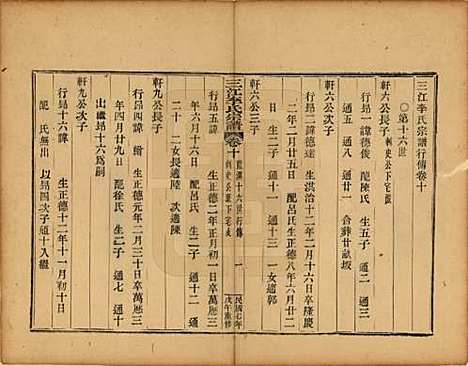 三江李氏宗譜行傳卷十
○第十六世 刺史公派下宅派
軒六公長子
行昂一諱德俊 配陳氏 生五子 通一 通三
通五 通八 通廿一 合葬廿畝坂
軒六公三子
行昂二諱德達 生洪治十二年二月十六日卒隆慶
二年二月廿五日 配呂氏生正德八年六月廿二
日生二子 通二 通四 一女適郭
軒六公三子
三江李氏宗譜 卷十 第十六世行傳 刺史公派下宅派 一 民國七年戊午重修
行昂五諱 生正德二年正月二十日卒萬歷二年
六月十六日 配呂氏 生二子 通十二 通
二十 二女長適陸 次適陳
軒九公長子
行昂四諱 紺 生正德元年二月三十日卒萬歷三
年四月廿九日 配徐氏 生二子 通七 通十
出繼昂十六為嗣
軒九公次子
行昂十六諱 生正德十二年十一月初十日
配 氏無出 以昂四次子通十入繼